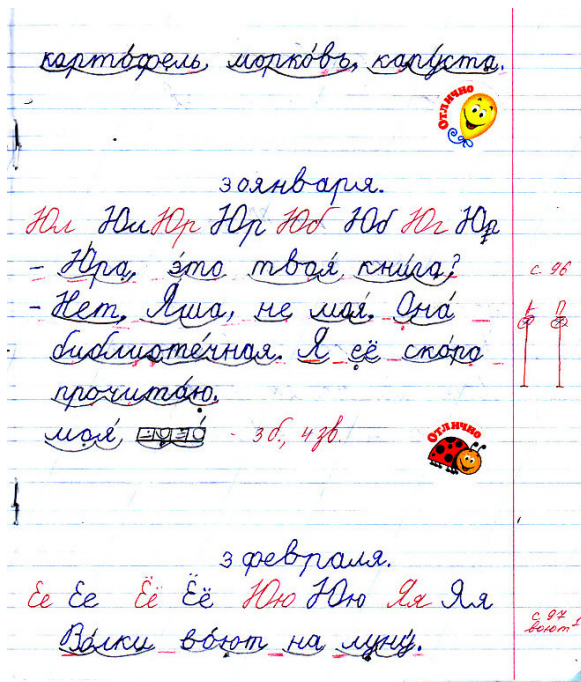 картофель, морковь, капуста.
Отлично
30 января.
Юл Юл Юр Юр Юб Юб Юг Юг
- Юра, это твоя книга?
с. 96
- Нет, Яша, не моя. Она
библиотечная. Я её скоро
прочитаю.
моя - 3 б., 4 зв.
Отлично
3 февраля.
Ее Ее Ёё Ёё Юю Юю Яя Яя
с. 97
воют
Волки воют на луну.